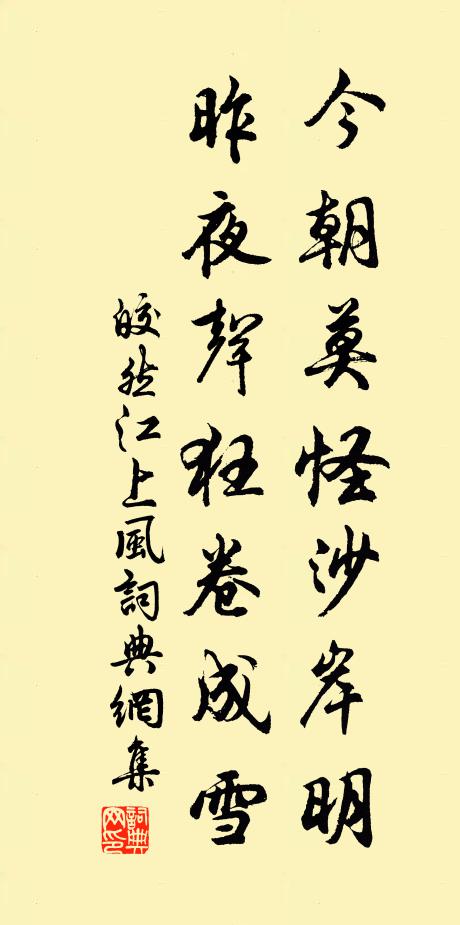 今朝莫怪沙岸明
昨夜聲狂卷成雪
皎然江上風詞典網集
詞典網印